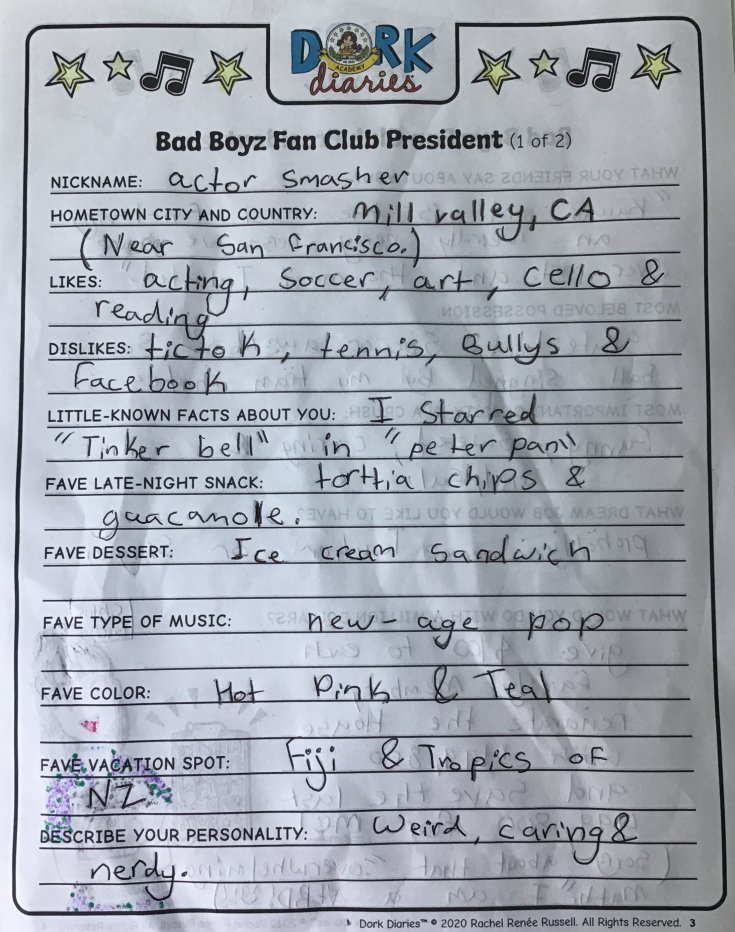 DORK
ACADEMY
diaries
Bad Boyz Fan Club President (1 of 2)
NICKNAME: actor smasher
HOMETOWN CITY AND COUNTRY: Mill valley, CA
(Near San francisco.)
LIKES: acting, Soccer, art, cello &
reading
DISLIKES: tictok, tennis, Bullys &
Facebook
LITTLE-KNOWN FACTS ABOUT YOU: I starred
"Tinker bell" in "peter pan"
FAVE LATE-NIGHT SNACK: torttial chips &
guacanole.
FAVE DESSERT: Ice cream sandwich
FAVE TYPE OF MUSIC: new-age pop
FAVE COLOR: Hot Pink & Teal
FAVE VACATION SPOT: Fiji & Tropics of
NZ
DESCRIBE YOUR PERSONALITY: Weird, caring &
nerdy.
Dork Diaries™ © 2020 Rachel Renée Russell. All Rights Reserved. 3